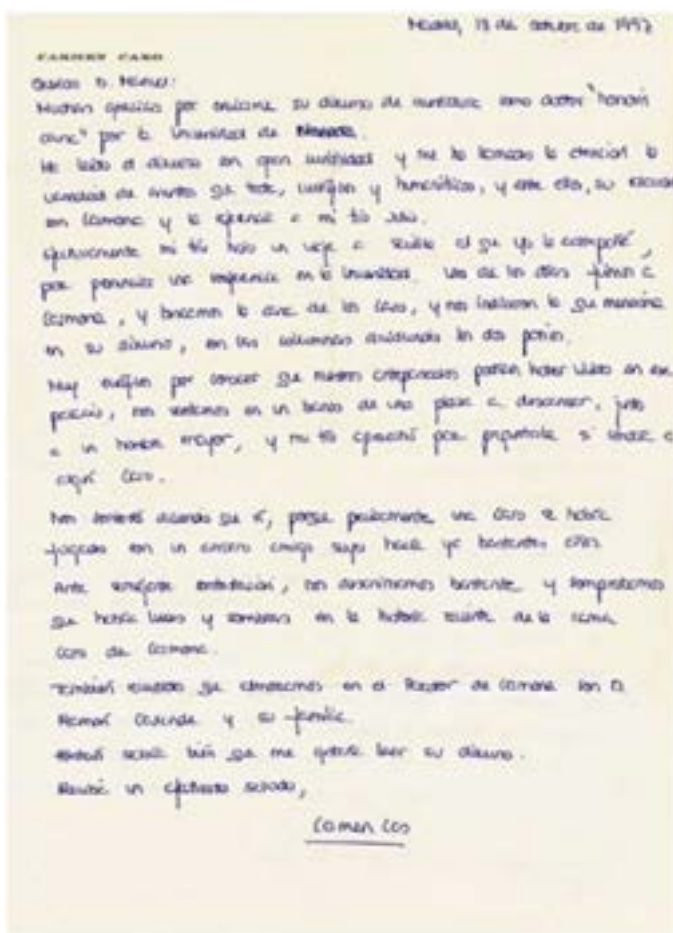 Madrid, 13 de octubre de 1997
CARMEN CARO
Querido D. Manuel:
Muchas gracias por enviarme su discurso de investidura como doctor "honoris
causa" por la Universidad de
He leído el discurso con gran curiosidad y me ha llamado la atención la
variedad de que toca, y y entre ellos, su
con Carmona y la referencia a mi tío Julio.
Efectivamente mi tío hizo un viaje a Sevilla al que yo le acompañé,
para pronunciar una conferencia en la Universidad. Uno de los días fuimos a
Carmona, y buscamos la casa de los Caro, y nos indicaron la que menciona
en su discurso, con las columnas dividiendo los dos patios.
Muy por conocer que nuestros antepasados podían haber vivido en ese
palacio, nos sentamos en un banco de una plaza a descansar, junto
a un hombre mayor, y mi tío aprovechó para preguntarle si conocía a
algún Caro.
Nos contestó diciendo que sí, porque precisamente una Caro se había
fugado con un amigo suyo hacía ya bastantes años.
Ante semejante contestación, nos desanimamos bastante y comprobamos
que había luces y sombras en la historia reciente de la rama
Caro de Carmona.
También recuerdo que almorzamos en el Parador de Carmona con D.
Ramón y su familia.
bien que me gustase leer su discurso.
Reciba un afectuoso saludo,
Carmen Caro